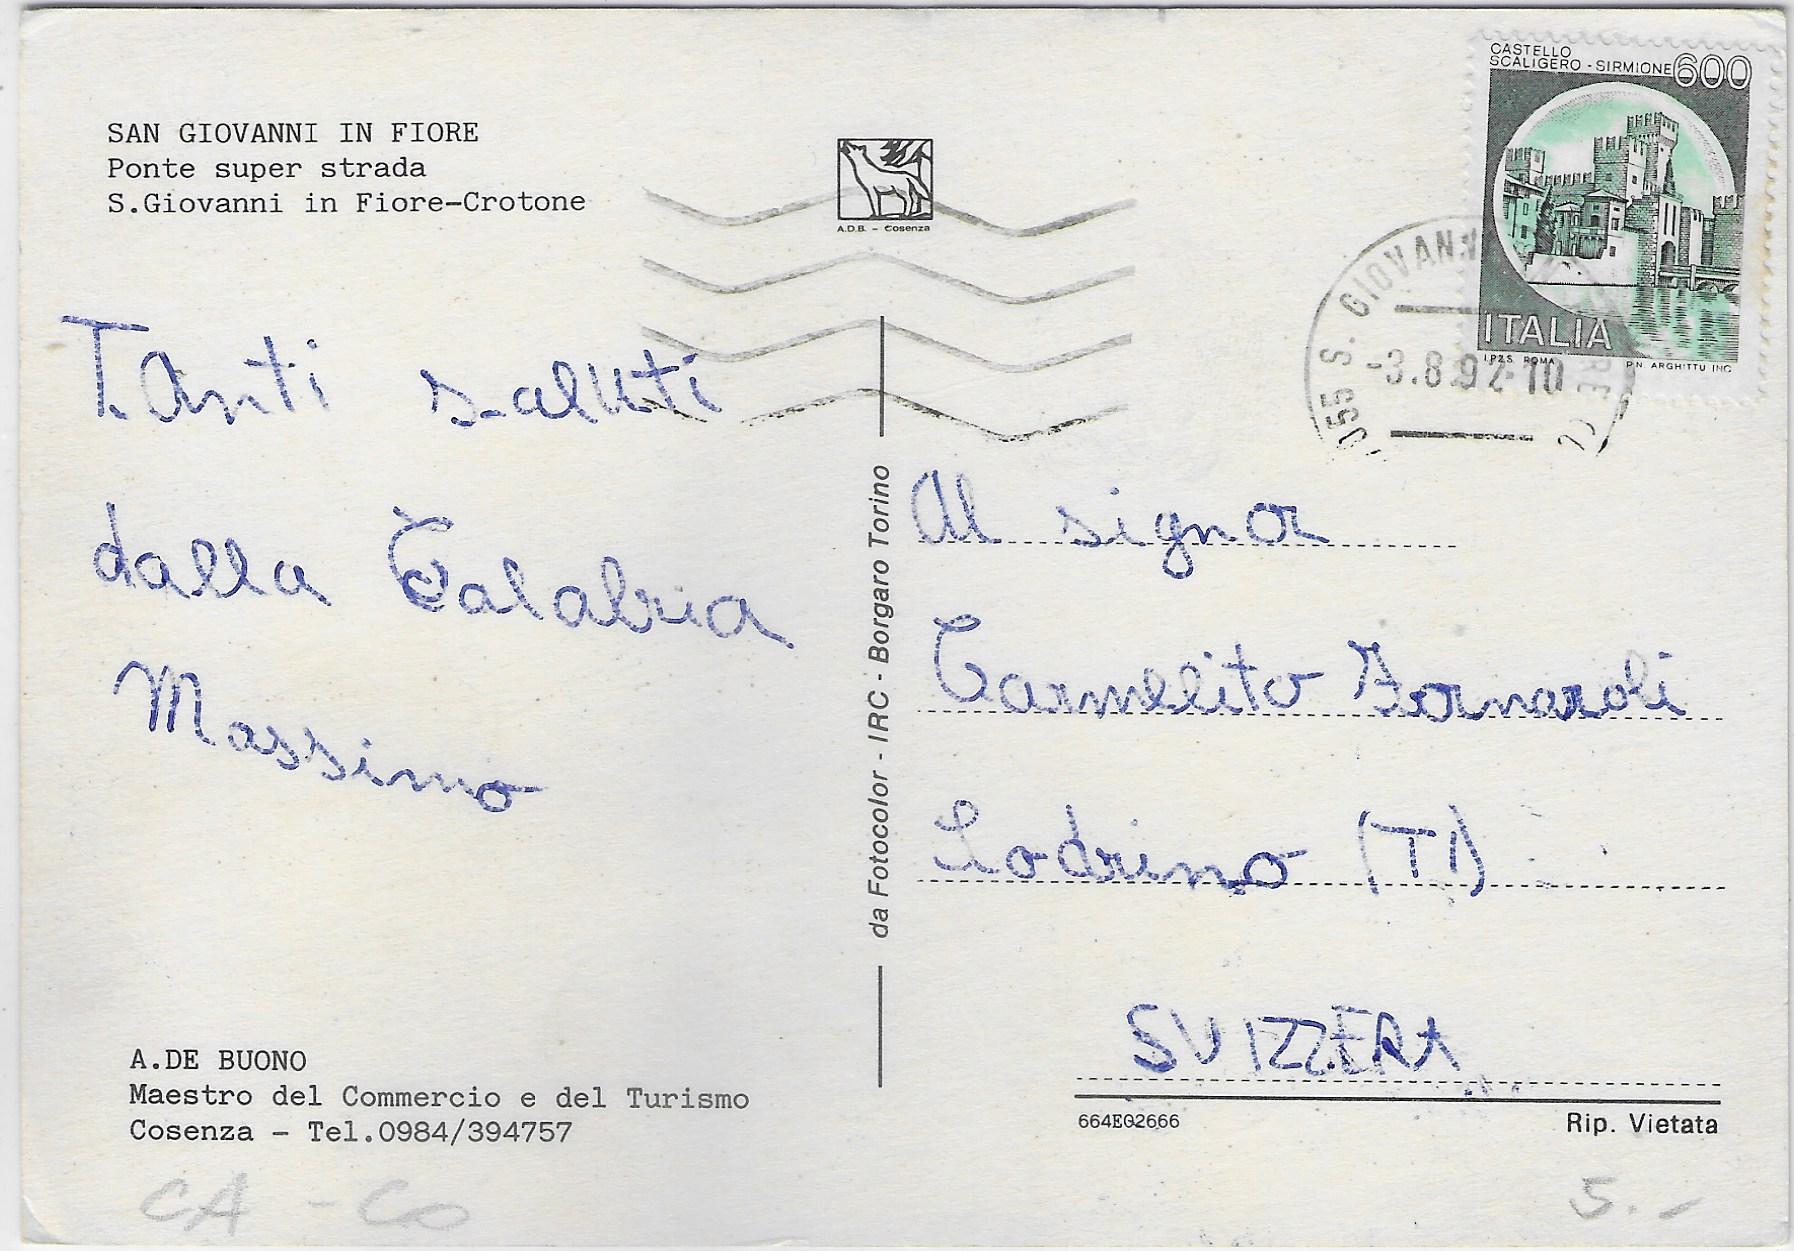 SAN GIOVANNI IN FIORE
Ponte super strada
S.Giovanni in Fiore-Crotone
A.D.B. - Cosenza
CASTELLO
SCALIGERO - SIRMIONE 600
ITALIA
I.P.Z.S. ROMA P.N. ARGHITTU INC
055 S. GIOVANN
-3.8.92-10
Tanti saluti
dalla Calabria
Massimo
da Fotocolor - IRC - Borgaro Torino
Al signor
Carmelito Fornaroli
Lodrino (TI)
SVIZZERA
A.DE BUONO
Maestro del Commercio e del Turismo
Cosenza - Tel.0984/394757
664EQ2666
Rip. Vietata
CA - CO
5.-